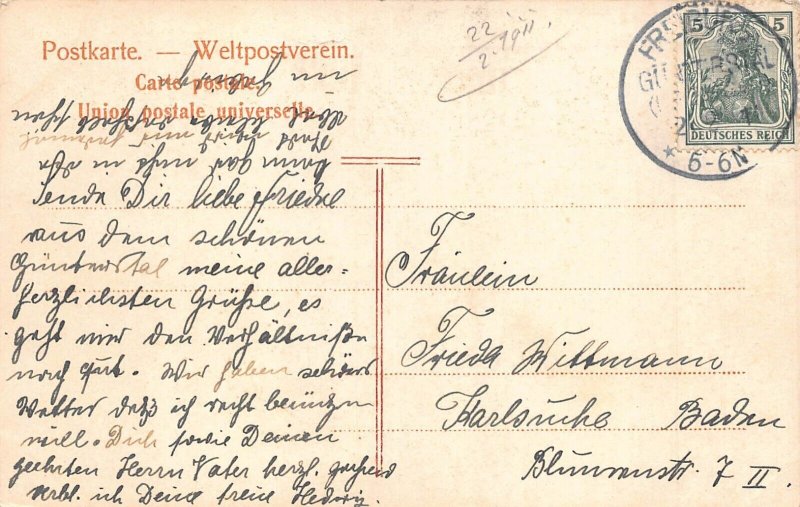 Postkarte. — Weltpostverein.
Carte postale.
Union postale universelle.
22
2. 1911.
5 5
DEUTSCHES REICH
* 6-6N
Sende Dir liebe Friedel
aus dem schönen
Günterstal meine aller-
herzlichsten Grüße, es
geht mir den Verhältniße
nach gut. Wir haben schönes
Wetter daß ich recht benützen
will. Dich sowie Deinen
geehrten Herrn Vater herzl. grüßend
verbl. ich Deine treue Hedwig.
Fräulein
Frieda Wittmann
Karlsruhe Baden
Blumenstr. 7 II.